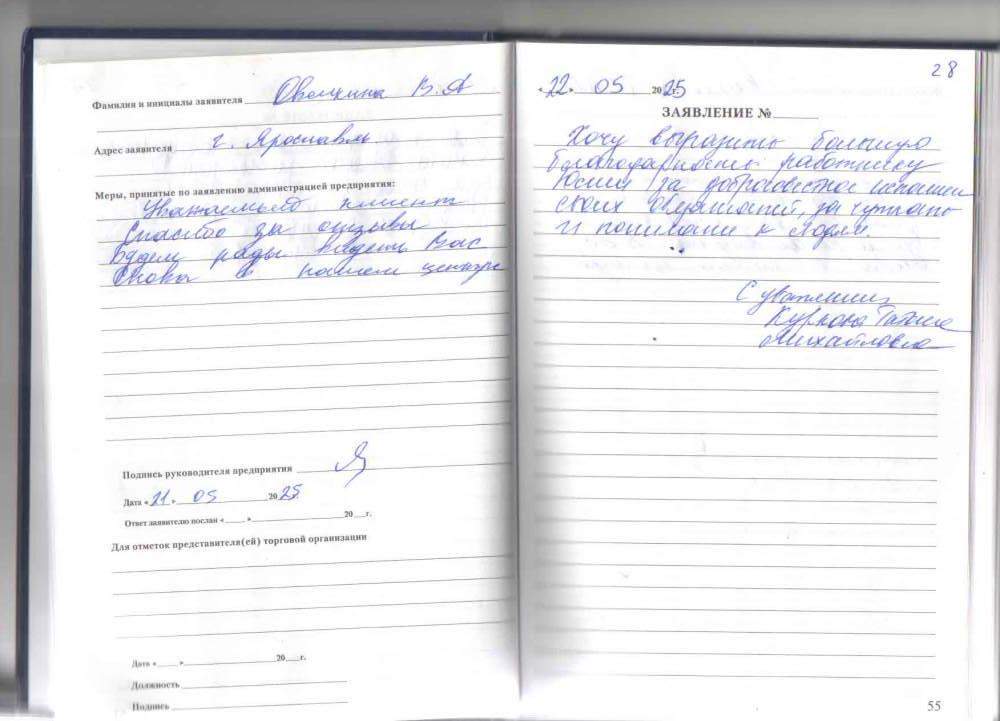 Фамилия и инициалы заявителя В.А
Адрес заявителя г. Ярославль
Меры, принятые по заявлению администрацией предприятия:
Уважаемый клиент
Спасибо за отзывы
Будем рады видеть Вас
снова в нашем центре
Подпись руководителя предприятия
Дата «21» 05 2025
Ответ заявителю послан «____ »____ 20__г.
Для отметок представителя(ей) торговой организации
Дата «____ »____ 20__г.
Должность
Подпись
28
«22» 05 2025
ЗАЯВЛЕНИЕ №
Хочу выразить большую
благодарность работнику
Юлии за добросовестное исполнени
своих обязаностей, за чуткость
и понимание к людям.
С уважением,
Куркова Татьяна
Михайловна
55